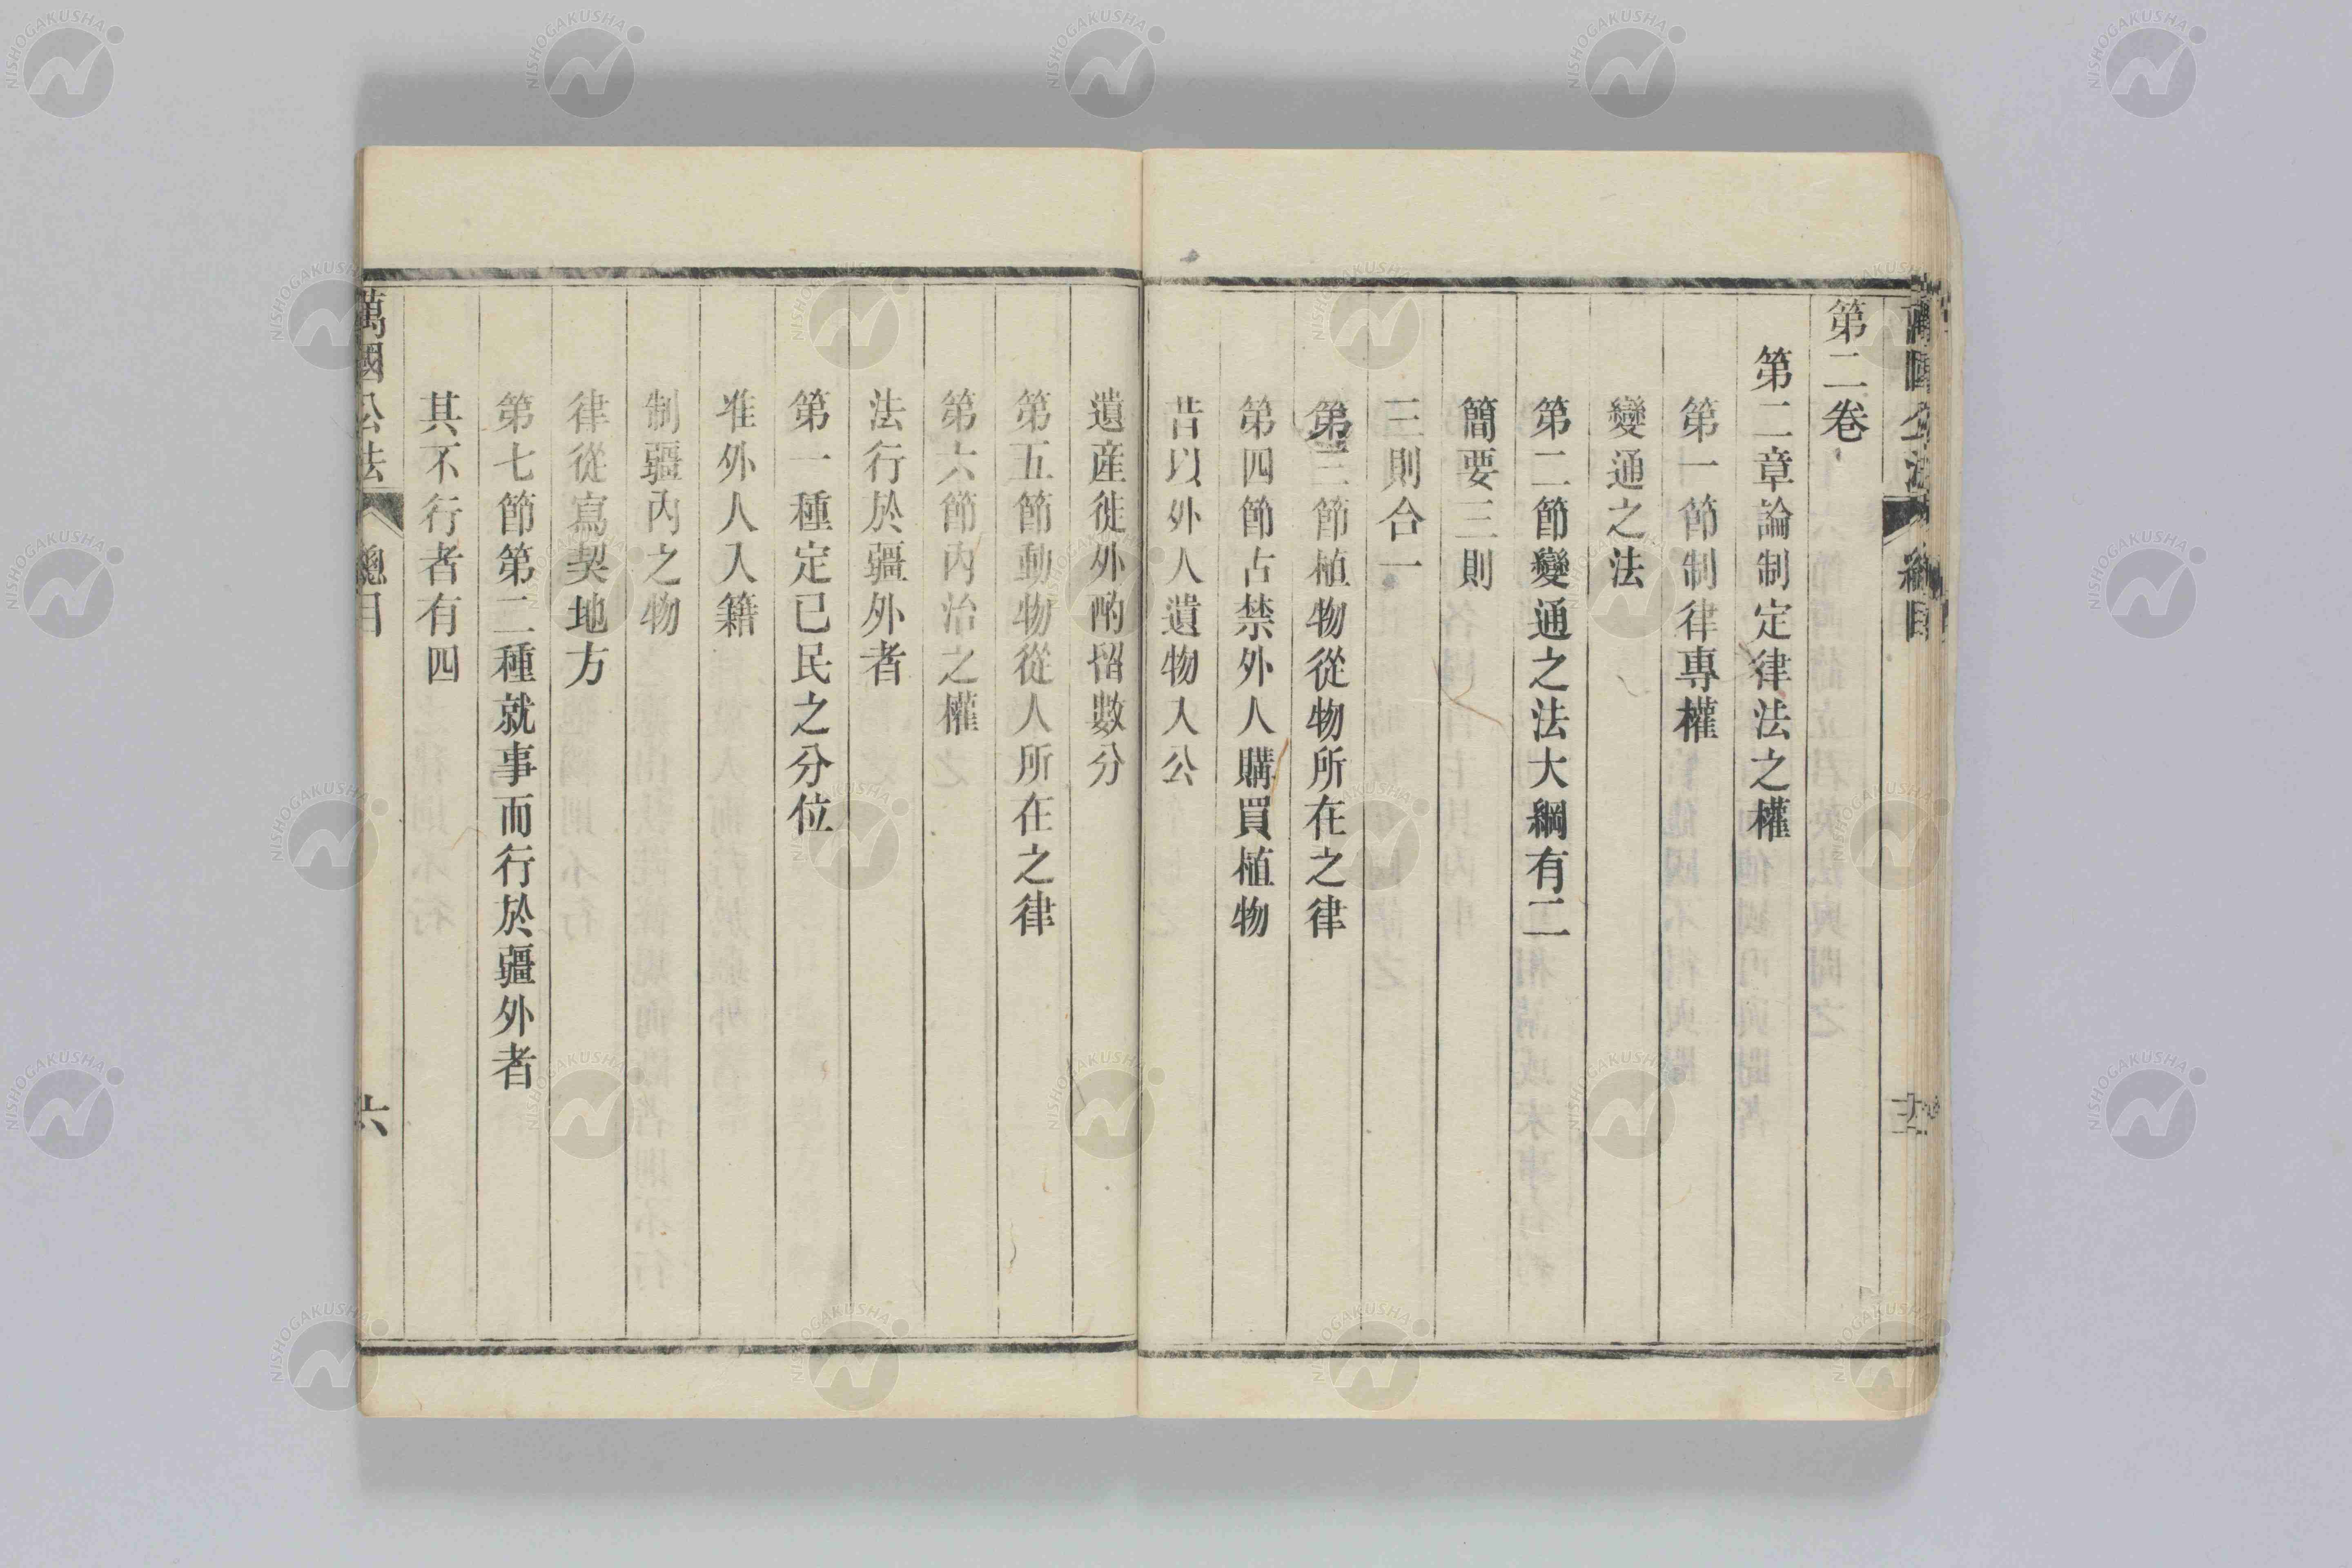 第二卷
第二章論制定律法之權
第一節制律專權
變通之法
第二節變通之法大綱有二
簡要三則
三則合一
第三節植物從物所在之律
第四節古禁外人購買植物
昔以外人遺物入公
遺産徙外酌留數分
第五節動物從人所在之律
第六節內治之權
法行於疆外者
第一種定已民之分位
准外人入籍
制疆內之物
律從寫契地方
第七節第二種就事而行於疆外者
其不行者有四
萬國公法 總目 六
NISHOGAKUSHA